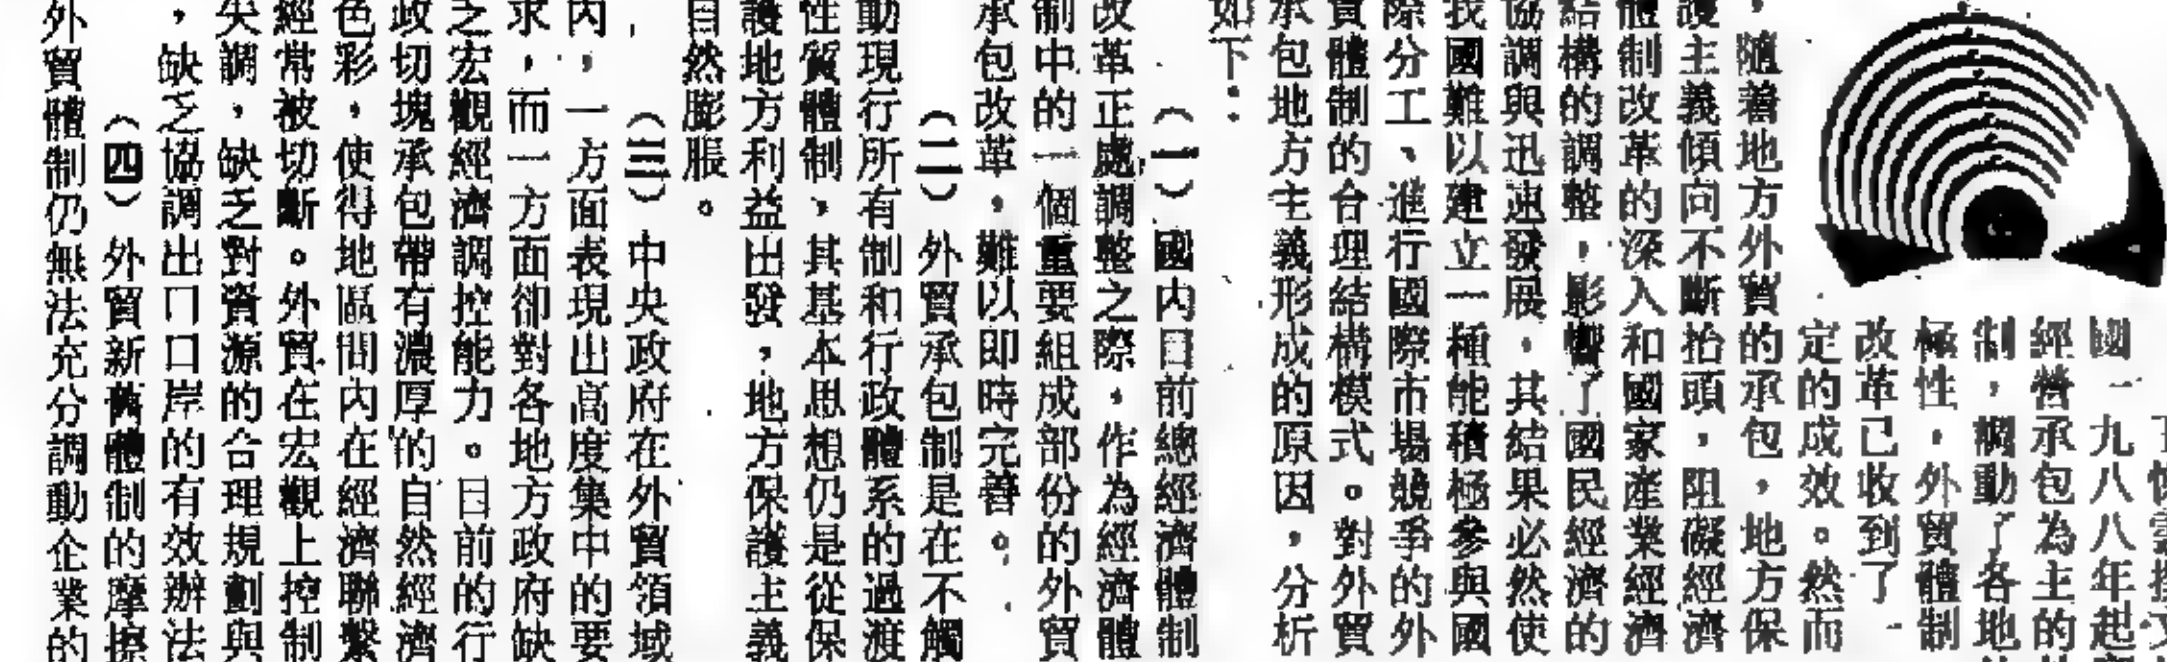 國一九八八年起
經營承包為主的
制，調動了各地
極性，外貿體制
改革已收到了一
定的成效。然而
，隨着地方外貿的承包，地方保
護主義傾向不斷抬頭，阻礙經濟
體制改革的深入和國家產業經濟
結構的調整，影響了國民經濟的
協調與迅速發展，其結果必然使
我國難以建立一種能積極參與國
際分工、進行國際市場競爭的外
貿體制的合理結構模式。對外貿
承包地方主義形成的原因，分析
如下：
（一）國內目前總經濟體制
改革正處調整之際，作為經濟體
制中的一個重要組成部份的外貿
承包改革，難以即時完善。
（二）外貿承包制是在不觸
動現行所有制和行政體系的過渡
性質體制，其基本思想仍是從保
護地方利益出發，地方保護主義
自然膨脹。
（三）中央政府在外貿領域
內，一方面表現出高度集中的要
求，而一方面卻對各地方政府缺
乏宏觀經濟調控能力。目前的行
政切塊承包帶有濃厚的自然經濟
色彩，使得地區間內在經濟聯繫
經常被切斷。外貿在宏觀上控制
失調，缺乏對資源的合理規劃與
，缺乏協調出口口岸的有效辦法
（四）外貿新舊體制的摩擦
外貿體制仍無法充分調動企業的